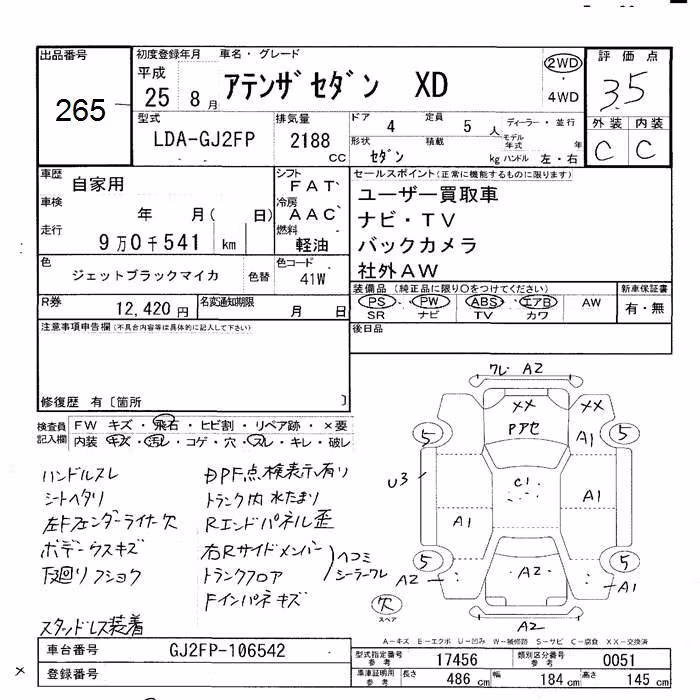 出品番号
265
初度登録年月
平成
25 8 月
車名・グレード
アテンザセダン XD
2WD
4WD
評価点
3.5
外装 内装
C C
型式
LDA-GJ2FP
排気量
2188
CC
ドア
4
定員
5 人
ディーラー・並行
モデル
年式
年
形状
セダン
積載
kg
ハンドル 左・右
車歴
自家用
車検
年 月( 日)
走行
9万0千541 km
シフト
FAT
冷房
AAC
燃料
軽油
セールスポイント(正常に機能するものに限ります)
ユーザー買取車
ナビ・TV
バックカメラ
社外AW
色
ジェットブラックマイカ
色替
色コード
41W
装備品(純正品に限り○をつけてください)
PS・PW・ABS・エアB AW
SR ナビ TV カワ
新車保証書
有・無
R券
12,420 円
名変通知期限
月 日
後日品
注意事項申告欄(不具合内容等は具体的に記入して下さい)
修復歴 有〔箇所 〕
検査員
記入欄
FW キズ・飛石・ヒビ割・リペア跡・×要
内装 キズ・汚レ・コゲ・穴・スレ・キレ・破レ
ハンドルスレ
シートヘタリ
左Fフェンダーライナー欠
ボデーウスキズ
下廻りフショク
スタッドレス装着
DPF点検表示有り
トランク内水たまり
Rエンドパネル歪
右Rサイドメンバー
トランクフロア
ヘコミ
シーラーワレ
Fインパネキズ
ワレ A2
XX
XX
Pアセ
5
5
A1
U3
C1
A1
A1
5
5
A2
A2
A1
欠
スペア
A2
A-キズ E-エクボ U-凹み W-補修跡 S-サビ C-腐食 XX-交換済
車台番号
GJ2FP-106542
登録番号
×
型式指定番号
参考
17456
類別区分番号
参考
0051
車庫証明用
参考
長さ
486 cm
幅
184 cm
高さ
145 cm